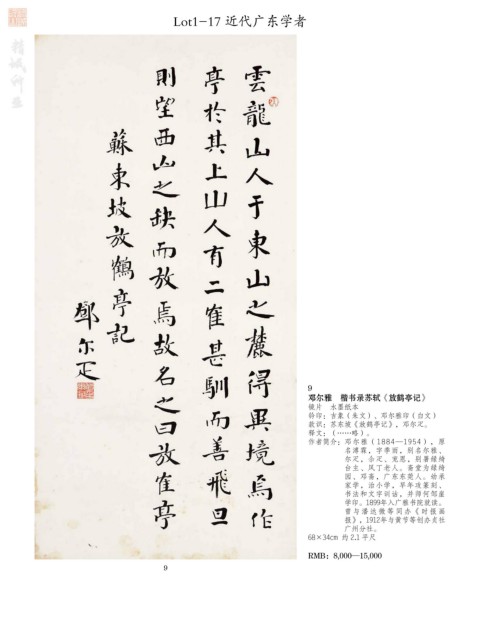 Lot1-17 近代广东学者
精诚所至
雲龍山人于東山之麓得異境焉作
亭於其上山人有二隺甚馴而善飛旦
則望西山之缺而放焉故名之曰放隺亭
蘇東坡放鶴亭記
鄧尔疋
9
9
邓尔雅 楷书录苏轼《放鹤亭记》
镜片 水墨纸本
钤印：古象（朱文）、邓尔雅印（白文）
款识：苏东坡《放鹤亭记》，邓尔疋。
释文：（……略）。
作者简介：邓尔雅（1884—1954），原
名溥霖，字季雨，别名尔雅、
尔疋，宠恩，别署绿绮
台主、风丁老人，斋堂为绿绮
园、邓斋，广东东莞人。幼承
家学，治小学，早年攻篆刻、
书法和文字训诂，并师何邹崖
学印。1899年入广雅书院就读。
曾与潘达微等同办《时报画
报》，1912年与黄节等创办贞社
广州分社。
68×34cm 约 2.1 平尺
RMB: 8,000—15,000